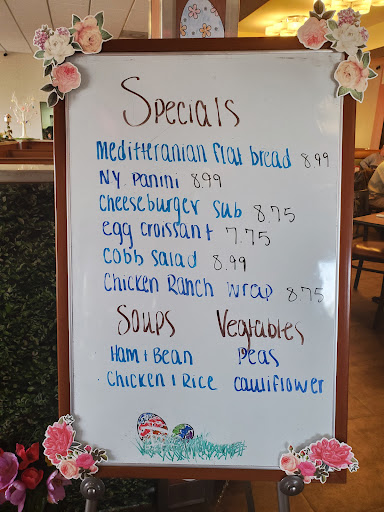 Specials
Meditteranian flat bread 8.99
N.Y. Panini 8.99
Cheeseburger sub 8.75
egg croissant 7.75
Cobb salad 8.99
Chicken Ranch wrap 8.75
Soups Vegtables
Ham & Bean Peas
Chicken & Rice cauliflower